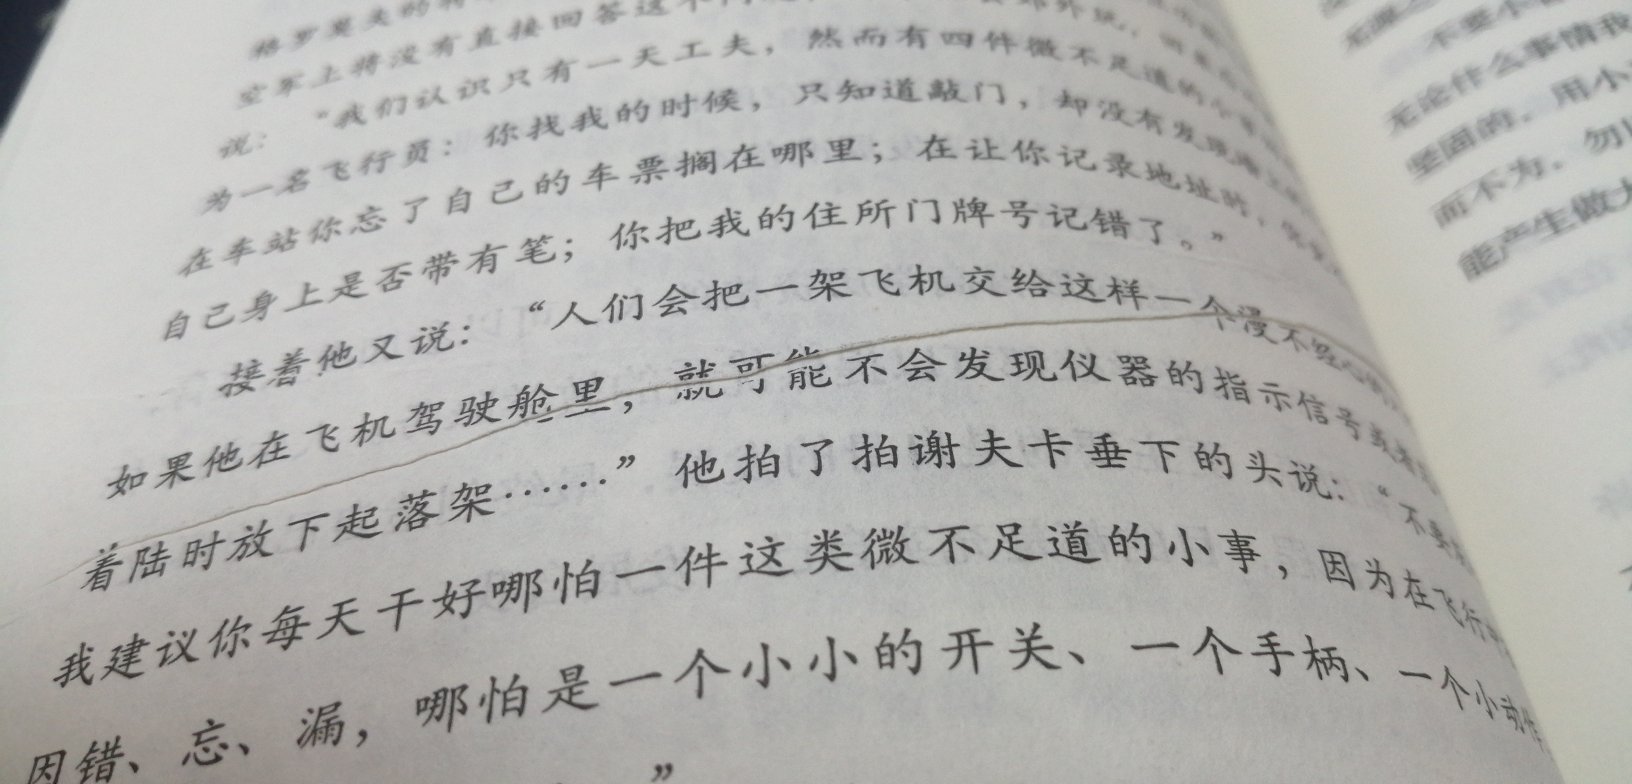 格罗莫夫的
空军上将没有直接回答这个问
说：“我们认识只有一天工夫，然而有四件微不足道的小事
为一名飞行员：你找我的时候，只知道敲门，却没有发现
在车站你忘了自己的车票搁在哪里；在让你记录地址时，
自己身上是否带有笔；你把我的住所门牌号记错了。”
接着他又说：“人们会把一架飞机交给这样一个漫不经心的
如果他在飞机驾驶舱里，就可能不会发现仪器的指示信号或
着陆时放下起落架……”他拍了拍谢夫卡垂下的头说：“不要
我建议你每天干好哪怕一件这类微不足道的小事，因为在飞行
因错、忘、漏，哪怕是一个小小的开关、一个手柄、一个小动作
”
不要小
无论什么事情我
坚固的。用小
而不为，勿以
能产生做大